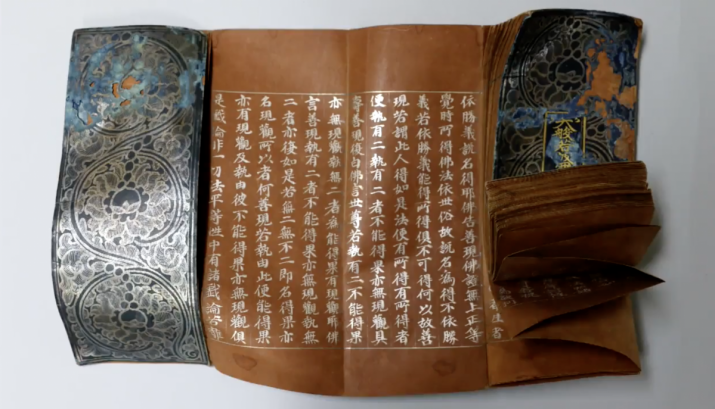 般若
依勝義說名得耶佛告善現佛證無上正等
覺時所得佛法依世俗故說名為得不依勝
義若依勝義能得所得俱不可得何以故善
現若謂此人得如是法便有所得有所得者
便執有二執有二者不能得果亦無現觀具
壽善現復白佛言世尊若執有二不能得果
亦無現觀執無二者為能得果有現觀耶佛
言善現執有二者不能得果亦無現觀執無
二者亦復如是若無二無不二即名得果亦
名現觀所以者何善現若執由此便能得果
亦有現觀及執由彼不能得果亦無現觀俱
是戲論非一切法平等性中有諸戲論若離